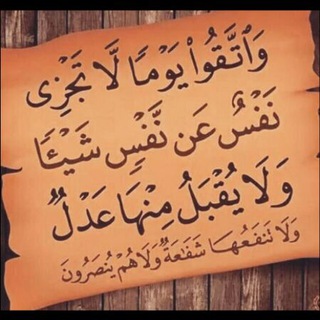 وَٱتَّقُوا۟ يَوْمًا لَّا تَجْزِى
نَفْسٌ عَن نَّفْسٍ شَيْـًٔا
وَلَا يُقْبَلُ مِنْهَا عَدْلٌ
وَلَا تَنفَعُهَا شَفَٰعَةٌ وَلَا هُمْ يُنصَرُونَ